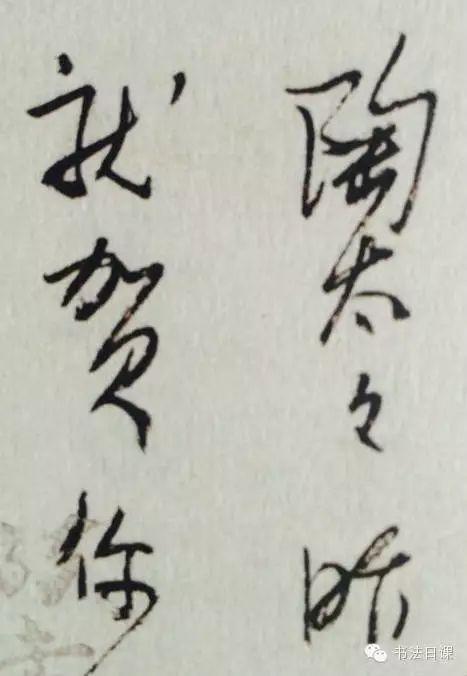 陶太々昨
就贺你
书法日课